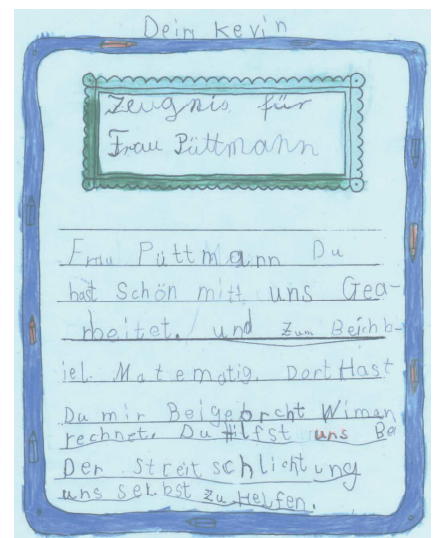 Dein Kevin
Zeugnis für
Frau Püttmann
Frau Püttmann Du
hast Schön mitt uns Gea-
rbeitet. und Zum Beichb-
iel Matematig. Dort Hast
Du mir Beigebrcht Wiman
rechnet. Du Hilfst uns Be
Der Streitschlichtung
uns selbst zu Helfen.